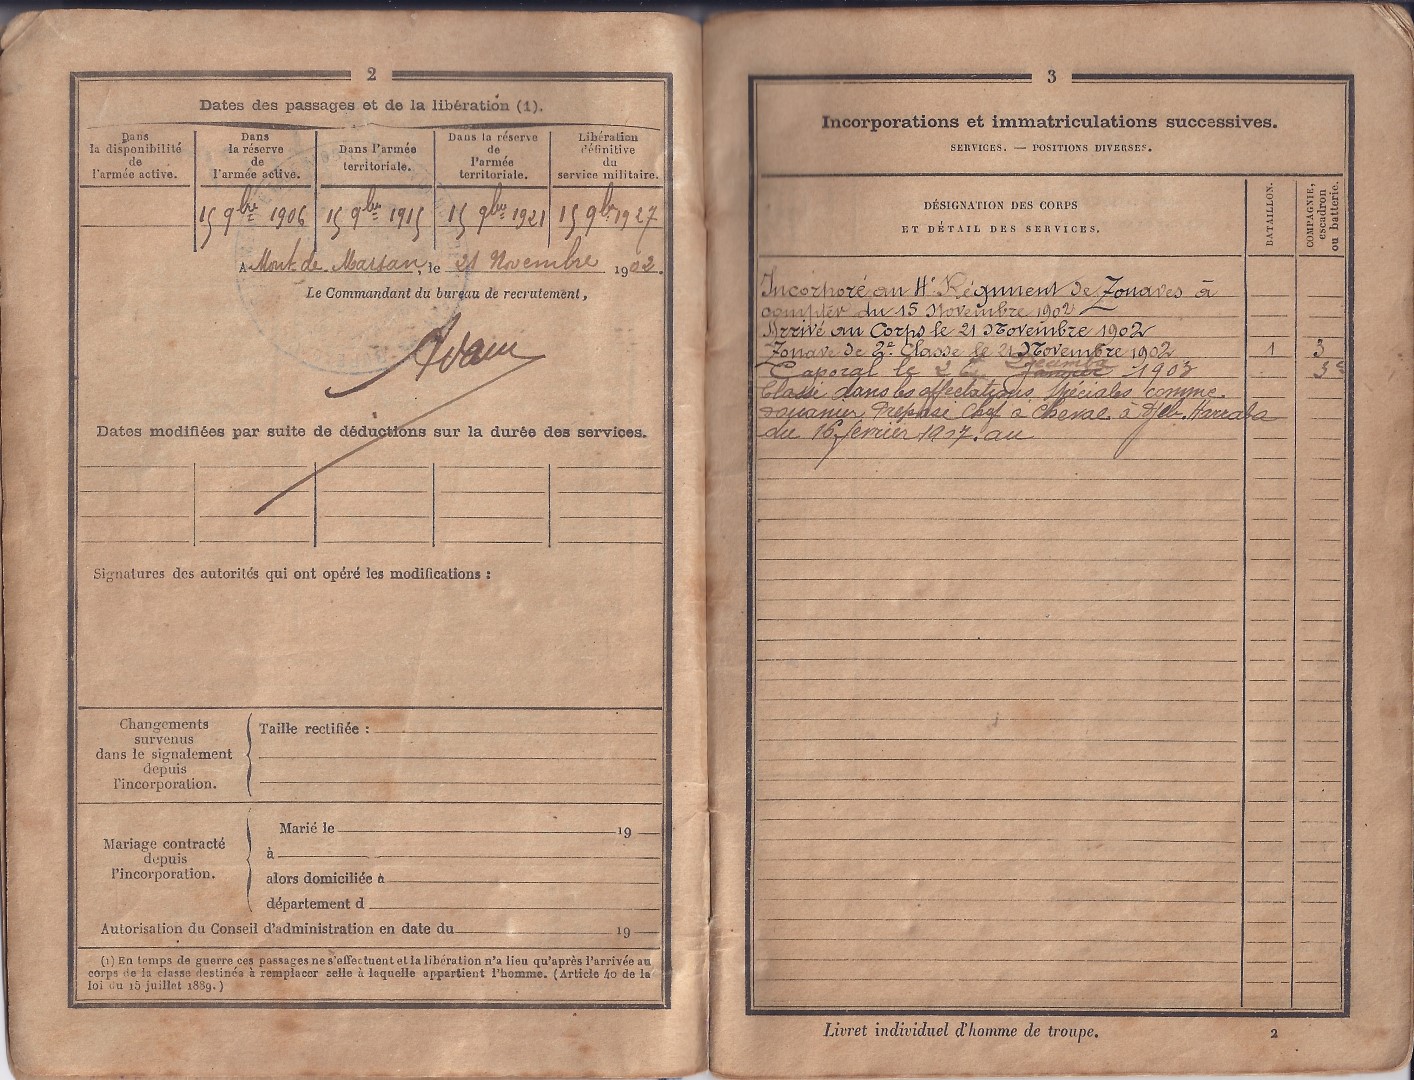 2
Dates des passages et de la libération (1).
Dans
la disponibilité
de
l'armée active.
Dans
la réserve
de
l'armée active.
Dans l'armée
territoriale.
Dans la réserve
de
l'armée
territoriale.
Libération
définitive
du
service militaire.
15 9bre 1906
15 9bre 1915
15 9bre 1921
15 9bre 1927
A Mont de Marsan, le 21 Novembre 1902.
Le Commandant du bureau de recrutement,
Adam
Dates modifiées par suite de déductions sur la durée des services.
Signatures des autorités qui ont opéré les modifications :
Changements
survenus
dans le signalement
depuis
l'incorporation.
Taille rectifiée :
Mariage contracté
depuis
l'incorporation.
Marié le 19
à
alors domiciliée à
département d
Autorisation du Conseil d'administration en date du 19
(1) En temps de guerre ces passages ne s'effectuent et la libération n'a lieu qu'après l'arrivée au
corps de la classe destinée à remplacer celle à laquelle appartient l'homme. (Article 40 de la
loi du 15 juillet 1889.)
3
Incorporations et immatriculations successives.
SERVICES. — POSITIONS DIVERSES.
DÉSIGNATION DES CORPS
ET DÉTAIL DES SERVICES.
BATAILLON.
COMPAGNIE,
escadron
ou batterie.
Incorporé au 4e Régiment de Zouaves à
compter du 15 Novembre 1902
Arrivé au Corps le 21 Novembre 1902
Zouave de 2e Classe le 21 Novembre 1902 1 3
Caporal le 1903
Classé dans les affectations spéciales comme
douanier Préposé Chef à Cheval à
du 16 février 1917. au
Livret individuel d'homme de troupe.
2